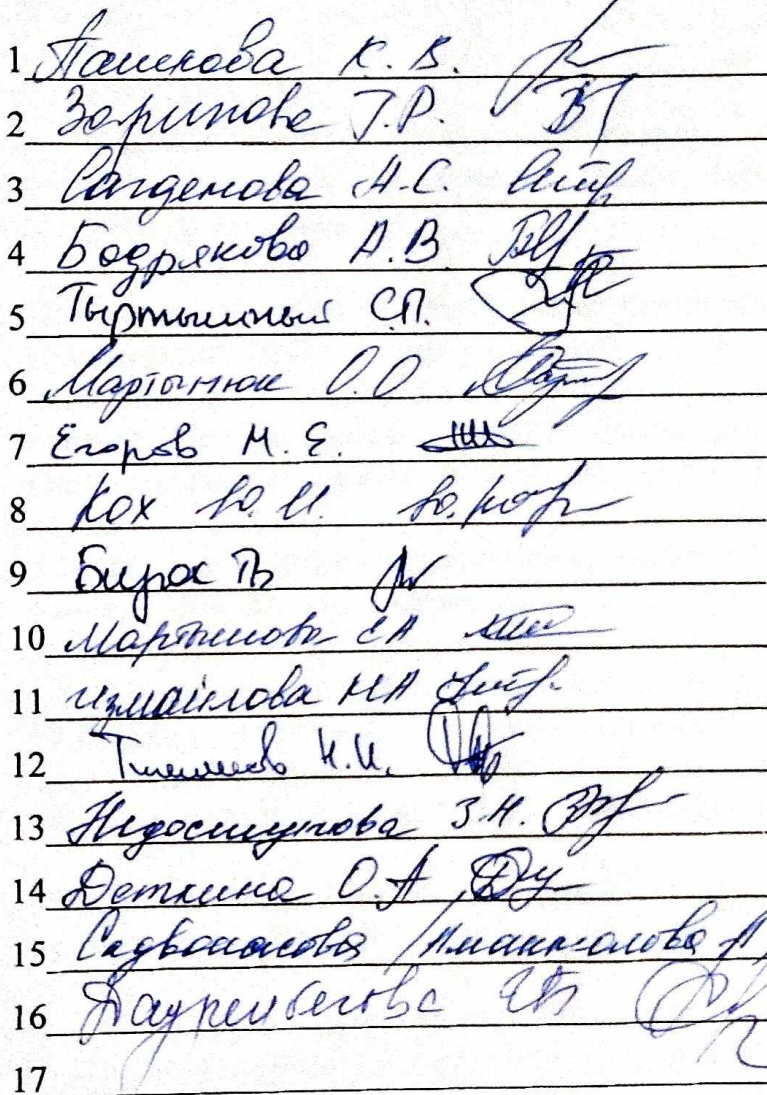 1 Пашкова К. В.
2 Зарипова Г.Р.
3 Сагденова А.С.
4 Бодрякова А.В.
5 Тыртышный С.П.
6 Мартынюк О.О
7 Егоров М.Е.
8 Кох Ю.И. Ю.Кох
9 Бирос ТВ
10 Мартынова ЕА
11 Измайлова НА
12 Н.И.
13 З.Н.
14 Деткина О.А
15 Садвокасова Аманжолова А
16 Дауренбегова
17